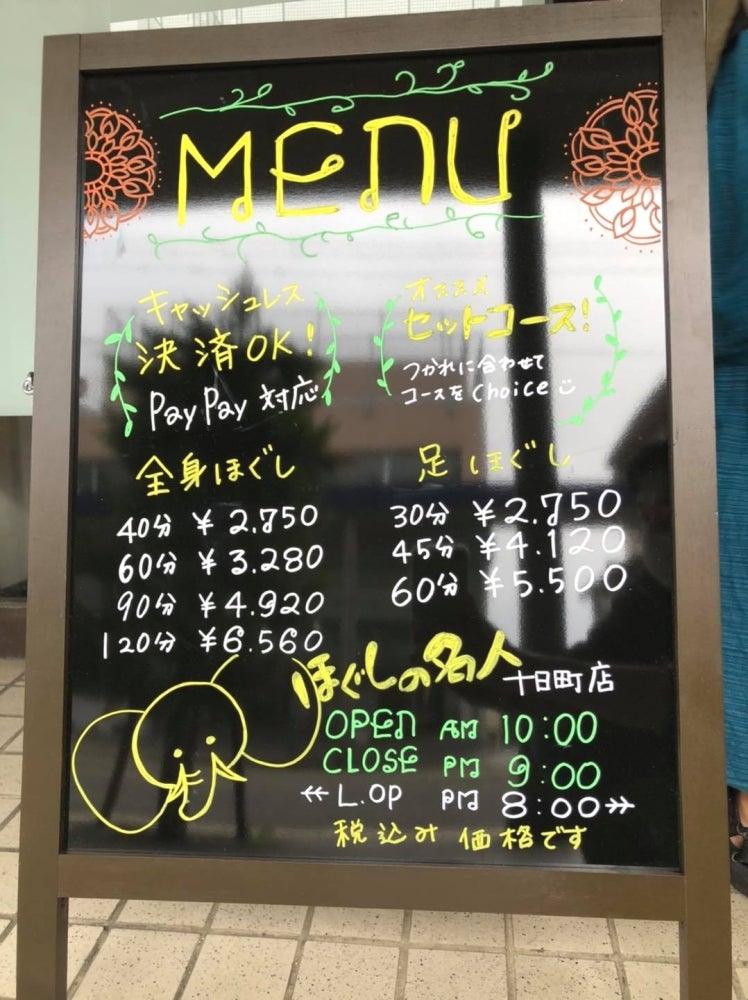 MENU
キャッシュレス
決済OK!
PayPay 対応
オススメ
セットコース!
つかれに合わせて
コースをchoice
全身ほぐし
40分 ¥2.750
60分 ¥3.280
90分 ¥4.920
120分 ¥6.560
足ほぐし
30分 ¥2.750
45分 ¥4.120
60分 ¥5.500
ほぐしの名人
十日町店
OPEN AM 10:00
CLOSE PM 9:00
L.OP PM 8:00
税込み価格です